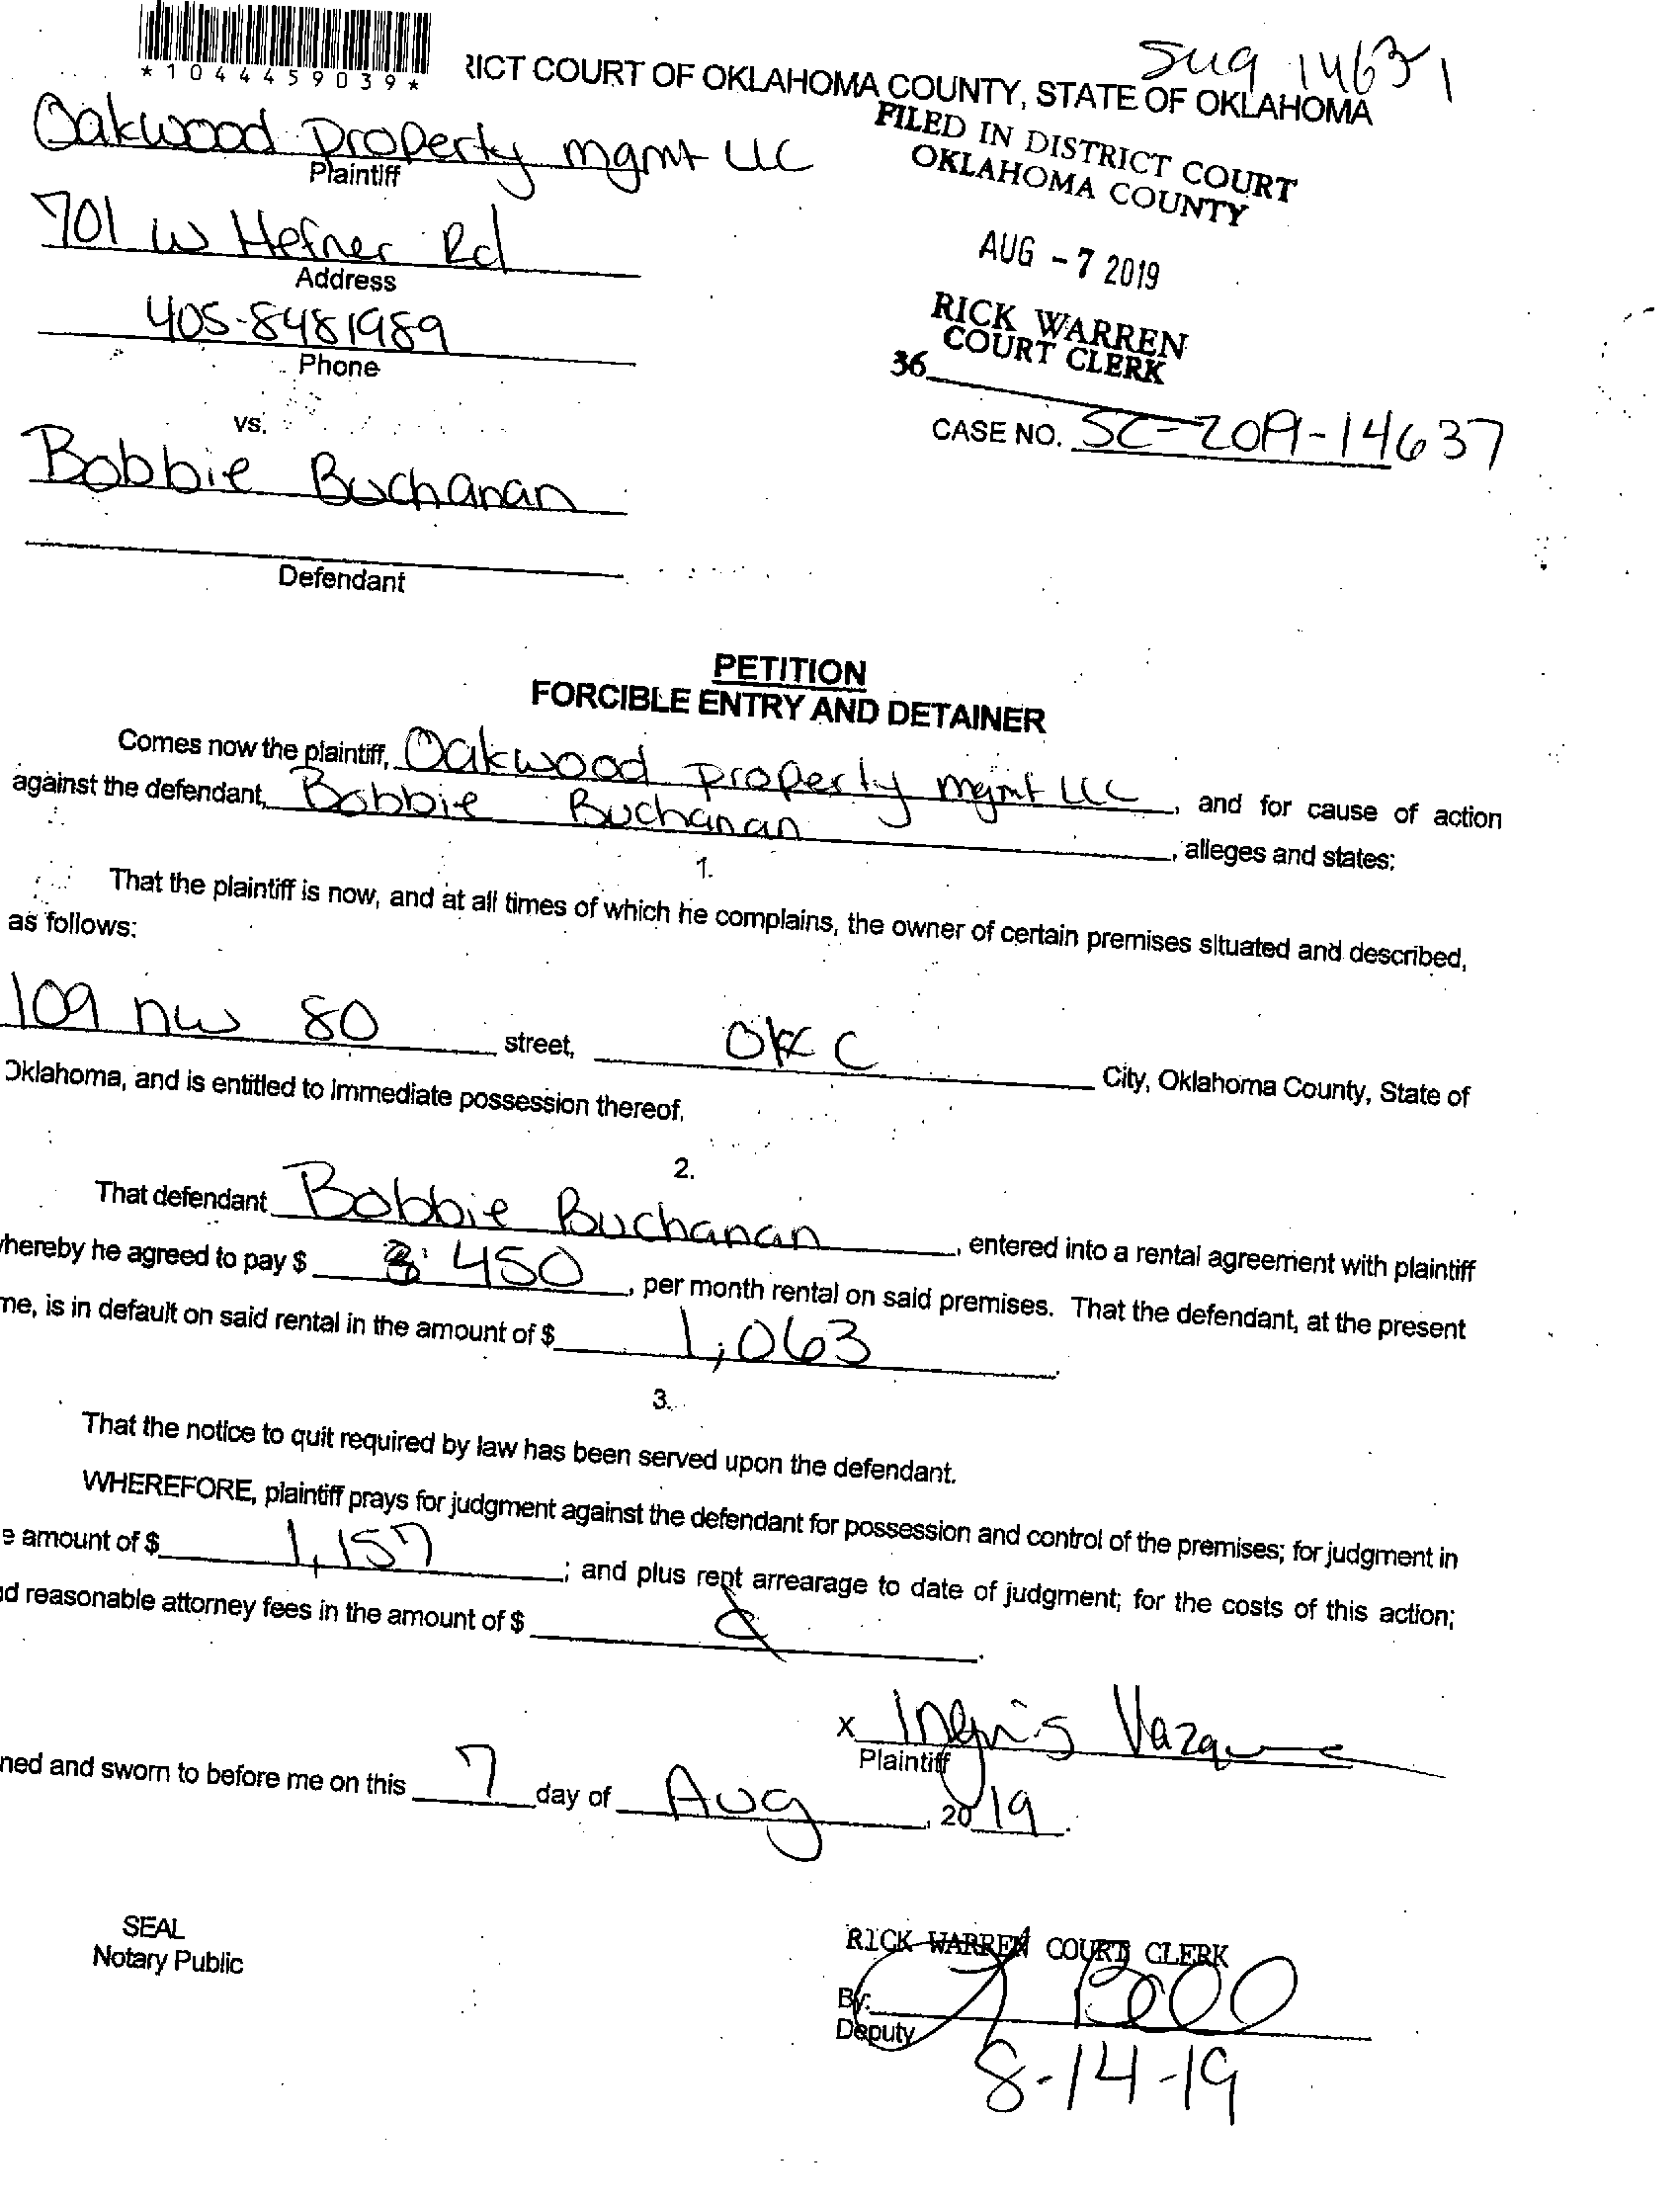 *1044459039*
RICT COURT OF OKLAHOMA COUNTY, STATE OF OKLAHOMA
Oakwood Property mgmt LLC
Plaintiff
FILED IN DISTRICT COURT
OKLAHOMA COUNTY
701 W Hefner Rd
Address
AUG - 7 2019
405-8481989
Phone
RICK WARREN
COURT CLERK
36
vs.
CASE NO. SC-2019-14637
Bobbie Buchanan
Defendant
PETITION
FORCIBLE ENTRY AND DETAINER
Comes now the plaintiff, Oakwood property mgmt LLC, and for cause of action
against the defendant, Bobbie Buchanan, alleges and states:
1.
That the plaintiff is now, and at all times of which he complains, the owner of certain premises situated and described,
as follows:
109 nw 80 street, OKC City, Oklahoma County, State of
Oklahoma, and is entitled to immediate possession thereof.
2.
That defendant Bobbie Buchanan, entered into a rental agreement with plaintiff
whereby he agreed to pay $ 450, per month rental on said premises. That the defendant, at the present
me, is in default on said rental in the amount of $ 1,063.
3.
That the notice to quit required by law has been served upon the defendant.
WHEREFORE, plaintiff prays for judgment against the defendant for possession and control of the premises; for judgment in
e amount of $ 1,157; and plus rent arrearage to date of judgment; for the costs of this action;
d reasonable attorney fees in the amount of $
X
Plaintiff
ned and sworn to before me on this 7 day of Aug, 2019.
SEAL
Notary Public
RICK WARREN COURT CLERK
By:
Deputy
8-14-19